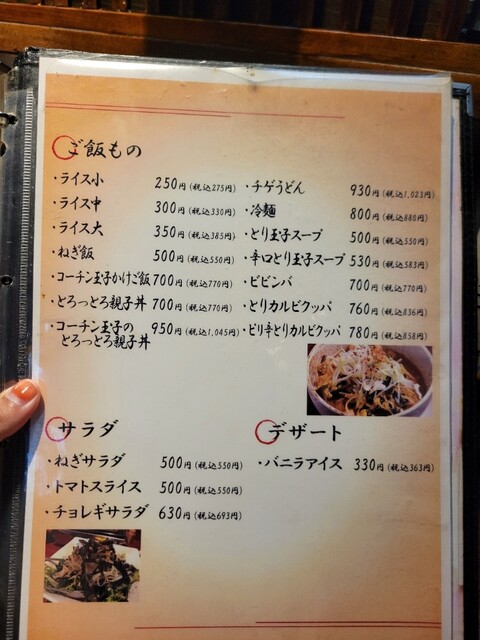 ご飯もの
・ライス小 250円(税込275円)
・ライス中 300円(税込330円)
・ライス大 350円(税込385円)
・ねぎ飯 500円(税込550円)
・コーチン玉子かけご飯 700円(税込770円)
・とろっとろ親子丼 700円(税込770円)
・コーチン玉子の
とろっとろ親子丼 950円(税込1,045円)
・チゲうどん 930円(税込1,023円)
・冷麺 800円(税込880円)
・とり玉子スープ 500円(税込550円)
・辛口とり玉子スープ 530円(税込583円)
・ビビンバ 700円(税込770円)
・とりカルビクッパ 760円(税込836円)
・ピリ辛とりカルビクッパ 780円(税込858円)
サラダ
・ねぎサラダ 500円(税込550円)
・トマトスライス 500円(税込550円)
・チョレギサラダ 630円(税込693円)
デザート
・バニラアイス 330円(税込363円)